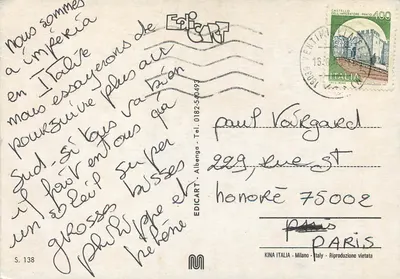 nous sommes
a impéria
en Italie
mais essayerons de
poursuivre plus au
Sud. si tous va bien
il fait en tous ça
un soleil super
grosses bisses
philippe et
hélène
EDICART
400
ITALIA
EDICART - Albenga - Tel. 0182-540493
paul Vargard
229 rue ST
honoré 75002
PARIS
S. 138
KINA ITALIA - Milano - Italy - Riproduzione vietata